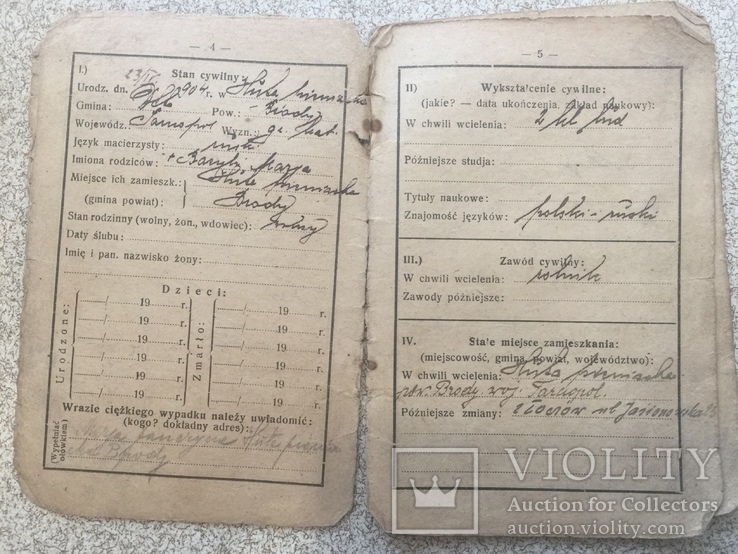 — 4 —
I.) Stan cywilny:
23/IV.
Urodz. dn. 904 r. w Huta
Gmina: Pow.: Brody
Wojewódz.: Tarnopol Wyzn.: gr. kat.
Język macierzysty: ruski
Imiona rodziców: + Marja
Miejsce ich zamieszk.: Huta
(gmina powiat): Brody
Stan rodzinny (wolny, żon., wdowiec): wolny
Daty ślubu:
Imię i pan. nazwisko żony:
Dzieci:
Urodzone:
Zmarło:
—/— 19 r. —/— 19 r.
—/— 19 r. —/— 19 r.
—/— 19 r. —/— 19 r.
—/— 19 r. —/— 19 r.
—/— 19 r. —/— 19 r.
—/— 19 r. —/— 19 r.
Wrazie ciężkiego wypadku należy uwiadomić:
(kogo? dokładny adres):
(Wypełniać ołówkiem)
Huta
Brody
— 5 —
II) Wykształcenie cywilne:
(jakie? — data ukończenia, zakład naukowy):
W chwili wcielenia: 2 kl. lud
Późniejsze studja:
Tytuły naukowe:
Znajomość języków: polski - ruski
III.) Zawód cywilny:
W chwili wcielenia: rolnik
Zawody późniejsze:
IV. Stałe miejsce zamieszkania:
(miejscowość, gmina, powiat, województwo):
W chwili wcielenia: Huta
pow. Brody woj. Tarnopol.
Późniejsze zmiany: Złoczów ul.
VIOLITY
Auction for Collectors
auction.violity.com